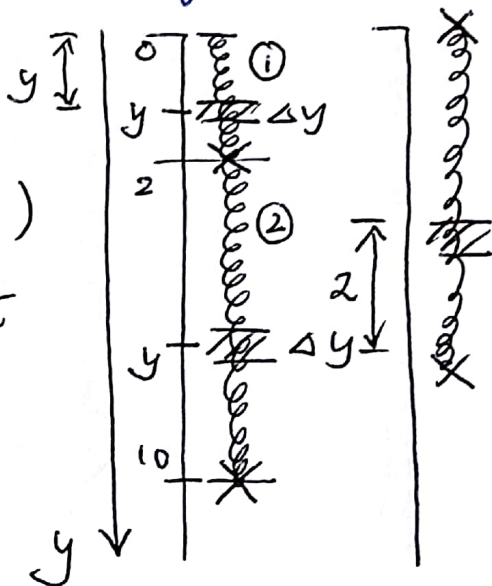 0
①
y
y
Δy
2
②
)
2
y
Δy
10
y